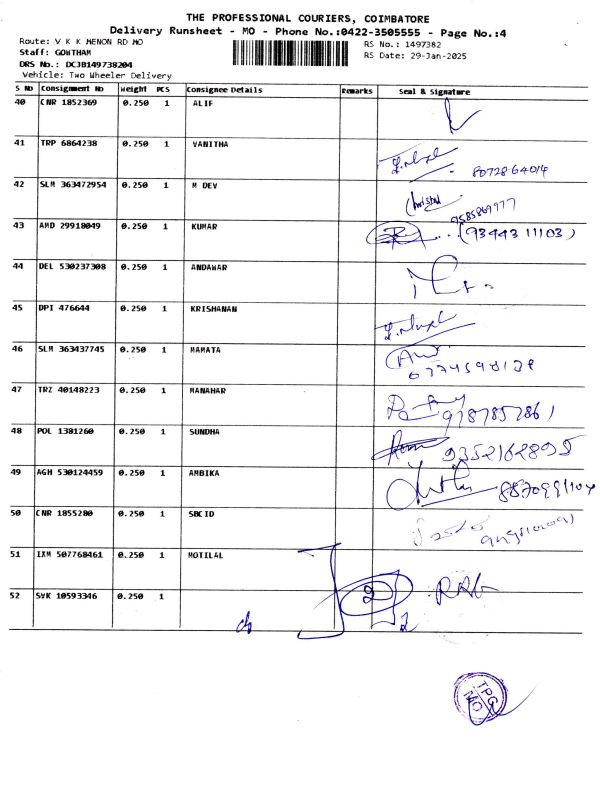 THE PROFESSIONAL COURIERS, COIMBATORE
Delivery Runsheet - MO - Phone No.:0422-3505555 - Page No.:4
Route: V K K MENON RD MO RS No.: 1497382
Staff: GOWTHAM RS Date: 29-Jan-2025
DRS No.: DCJB149738204
Vehicle: Two Wheeler Delivery
S No Consignment No Weight PCS Consignee Details Remarks Seal & Signature
40 CNR 1852369 0.250 1 ALIF
41 TRP 6864238 0.250 1 VANITHA
80728 64014
42 SLM 363472954 0.250 1 M DEV
9585869977
43 AMD 29918049 0.250 1 KUMAR
(93443 11103)
44 DEL 530237308 0.250 1 ANDAWAR
45 DPI 476644 0.250 1 KRISHANAN
46 SLM 363437745 0.250 1 MAMATA
47 TRZ 40148223 0.250 1 MANAHAR
48 POL 1381260 0.250 1 SUNDHA
9352162895
49 AGH 530124459 0.250 1 AMBIKA
8870991104
50 CNR 1855280 0.250 1 SBCID
51 IXM 507768461 0.250 1 MOTILAL
52 SVK 10593346 0.250 1
TPG
MO